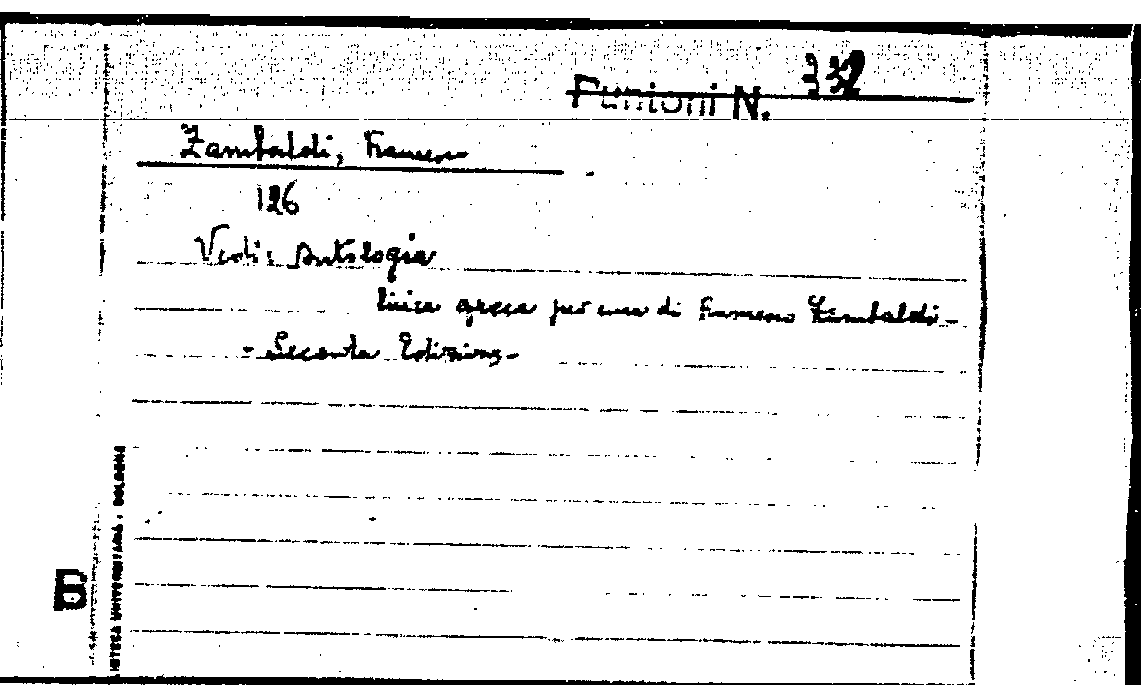 Puntoni N. 332
Zambaldi, Francesco
126
Vedi: Antologia
lirica greca per cura di Francesco Zambaldi -
- Seconda Edizione -
B
IOTECA UNIVERSITARIA . BOLOGNA